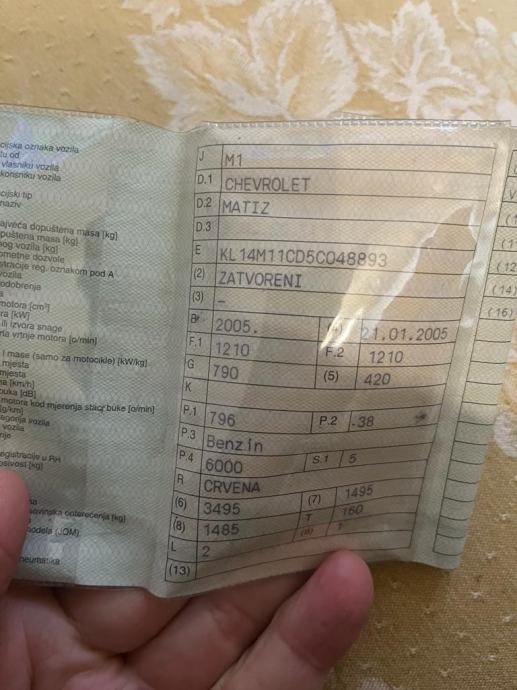 cijska oznaka vozila
tu od
vlasniku vozila
korisniku vozila
cijski tip
naziv
ajveća dopuštena masa [kg]
puštena masa [kg]
nog vozila [kg]
ometne dozvole
stracije reg. oznakom pod A
vozila
odobrenja
motora [cm³]
ra [kW]
ili izvora snage
na vrtnje motora [o/min]
i mase (samo za motocikle) [kW/kg]
mjesta
mjesta
na [km/h]
buka [dB]
motora kod mjerenja stac. buke [o/min]
[g/km]
egorija vozila
vozila
nje
egistracije u RH
osivost [kg]
na
savinska opterećenja [kg]
modela (JOM)
neumatika
J M1
D.1 CHEVROLET
D.2 MATIZ
D.3
E KL14M11CD5C048893
(2) ZATVORENI
(3) –
B 2005. (4) 21.01.2005
F.1 1210 F.2 1210
G 790 (5) 420
K
P.1 796 P.2 38
P.3 Benzin
P.4 6000 S.1 5
R CRVENA
(6) 3495 (7) 1495
(8) 1485 T 160
L 2
(13)
V
(12
(14)
(16)